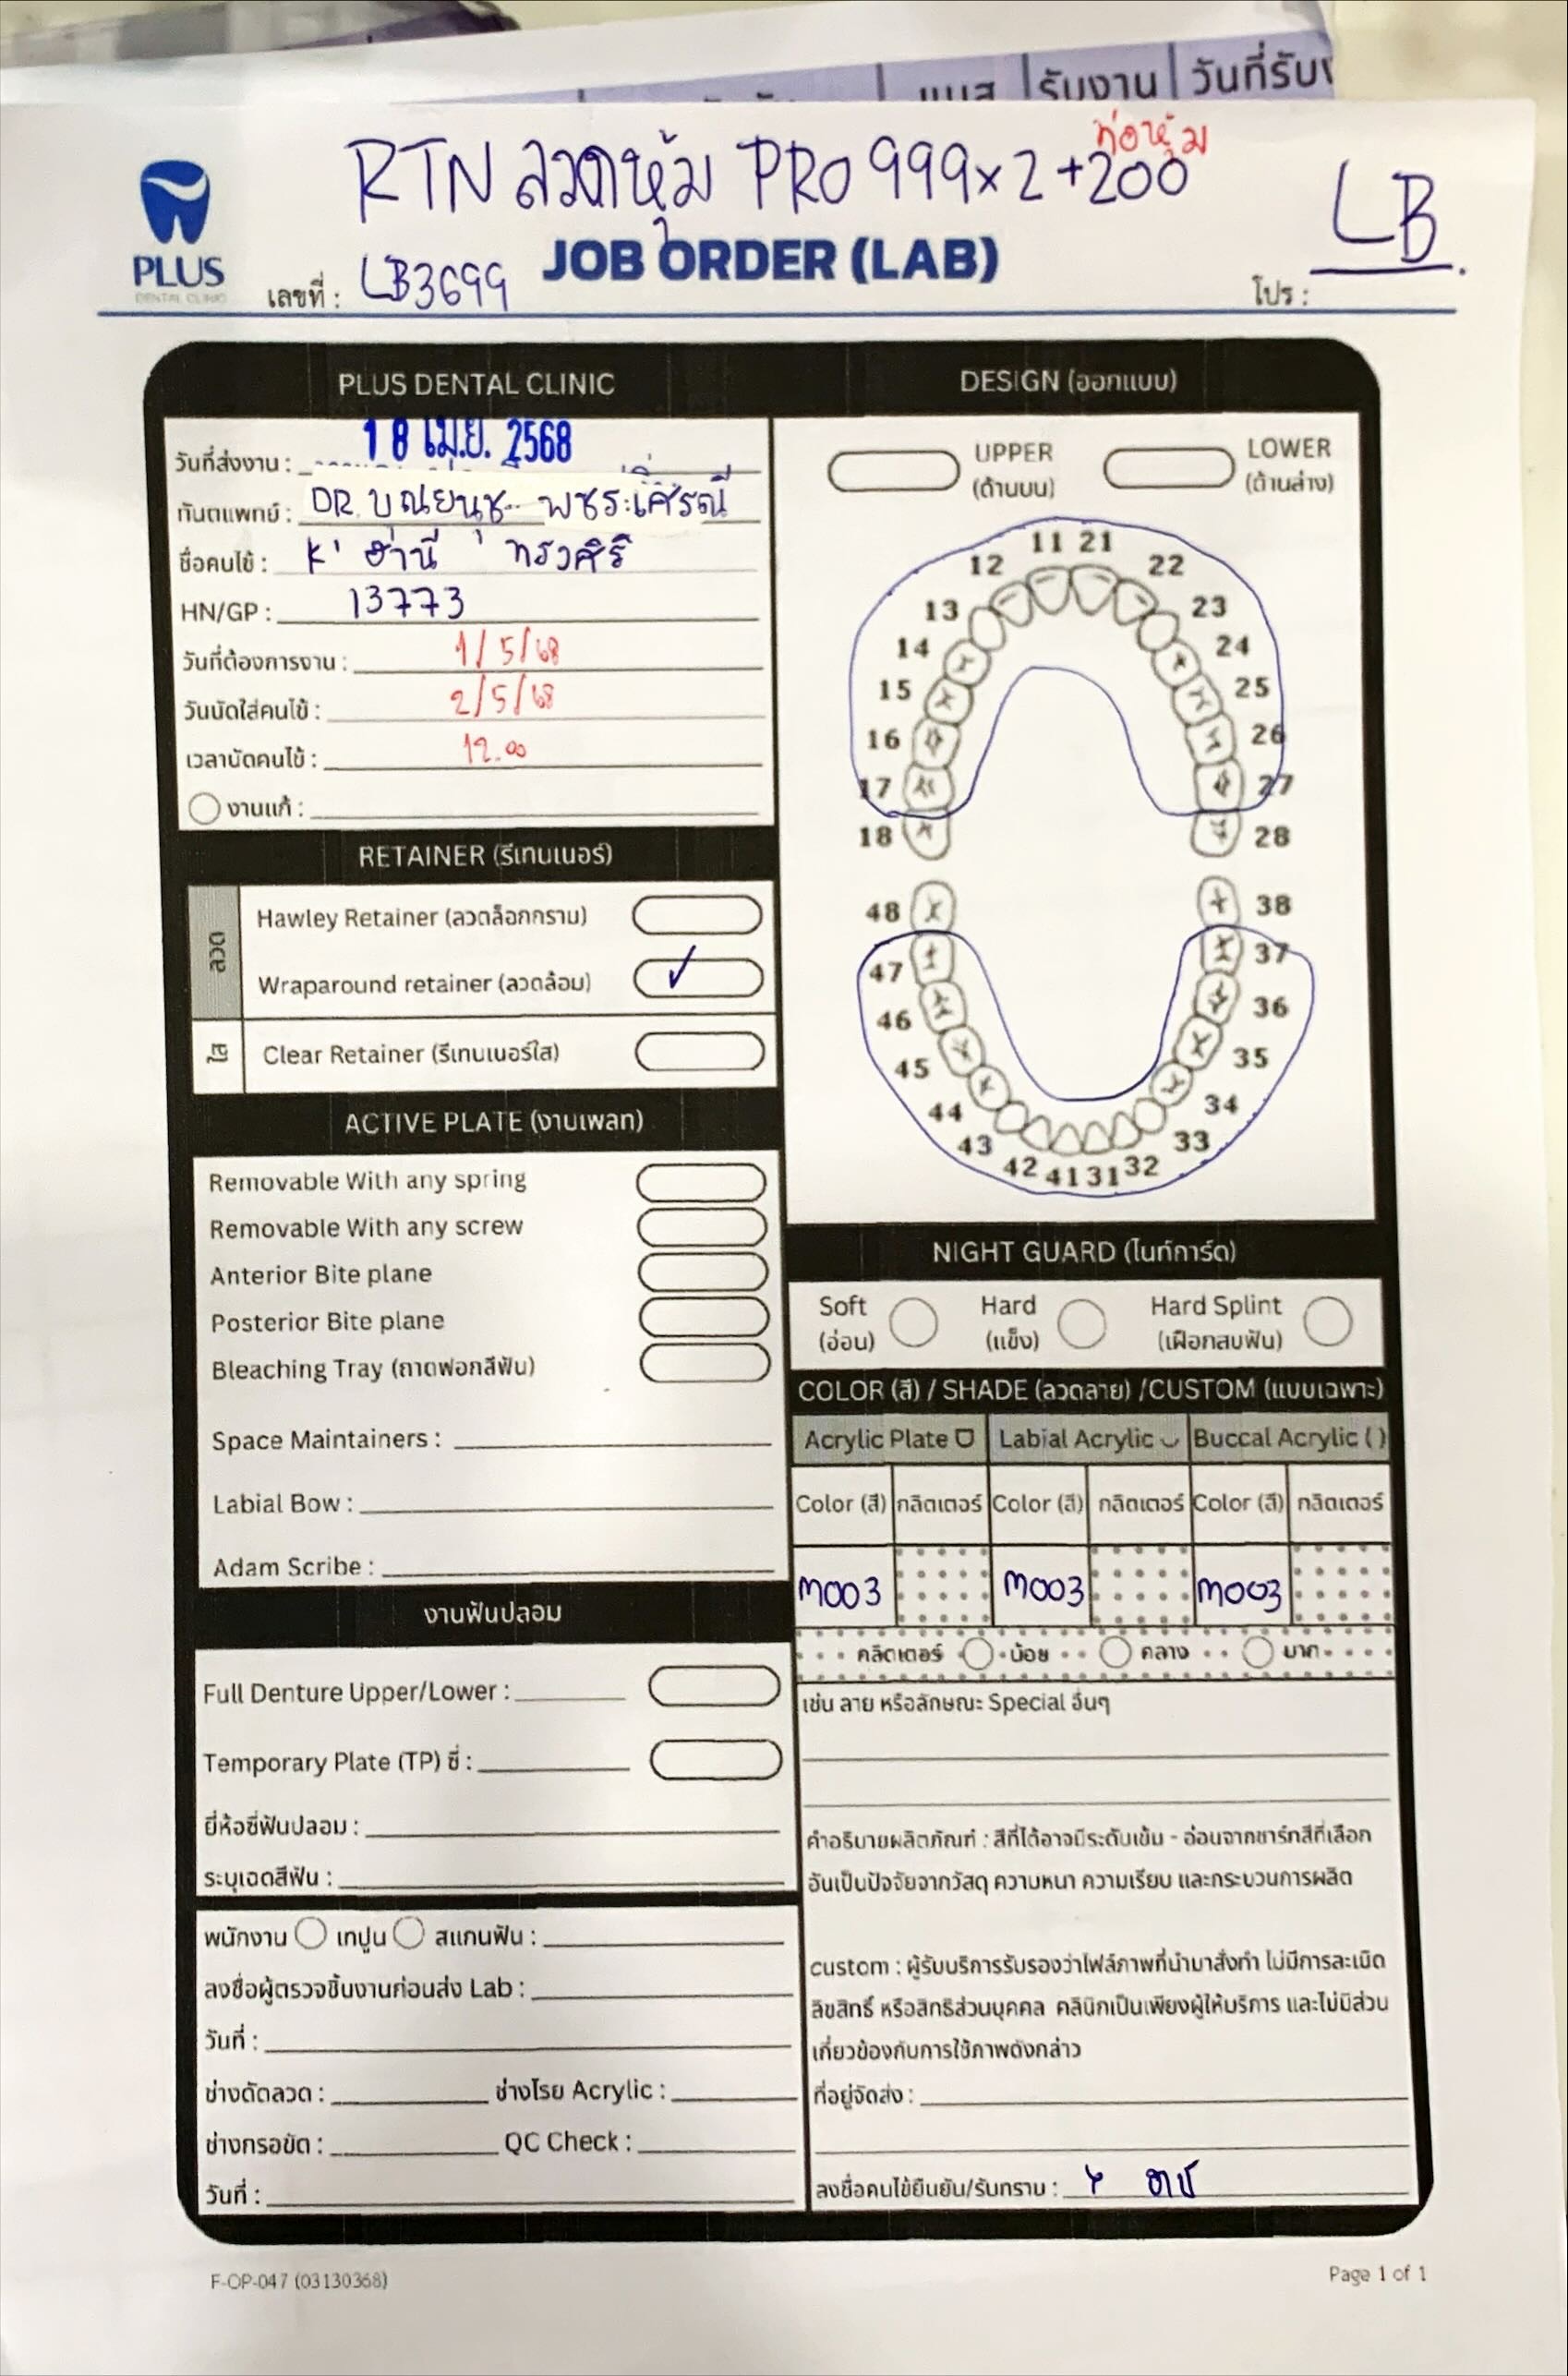 แมส รับงาน วันที่รับ
ท่อหุ้ม
RTN ลวดหุ้ม PRO 999x2+200
LB
PLUS
DENTAL CLINIC
เลขที่ : LB3699
JOB ORDER (LAB)
โปร :
PLUS DENTAL CLINIC
วันที่ส่งงาน : 18 เม.ย. 2568
ทันตแพทย์ : DR. บุณยนุช พชระเศิรณี
ชื่อคนไข้ : K' ฮานี ทรงศิริ
HN/GP : 13773
วันที่ต้องการงาน : 1/5/68
วันนัดใส่คนไข้ : 2/5/68
เวลานัดคนไข้ : 12.00
งานแก้ :
RETAINER (รีเทนเนอร์)
ลวด
Hawley Retainer (ลวดล็อกกราม)
Wraparound retainer (ลวดล้อม) ✓
ใส
Clear Retainer (รีเทนเนอร์ใส)
ACTIVE PLATE (งานเพลท)
Removable With any spring
Removable With any screw
Anterior Bite plane
Posterior Bite plane
Bleaching Tray (ถาดฟอกสีฟัน)
Space Maintainers :
Labial Bow :
Adam Scribe :
งานฟันปลอม
Full Denture Upper/Lower :
Temporary Plate (TP) ซี่ :
ยี่ห้อซี่ฟันปลอม :
ระบุเฉดสีฟัน :
พนักงาน เทปูน สแกนฟัน :
ลงชื่อผู้ตรวจชิ้นงานก่อนส่ง Lab :
วันที่ :
ช่างดัดลวด : ช่างโรย Acrylic :
ช่างกรอขัด : QC Check :
วันที่ :
DESIGN (ออกแบบ)
UPPER LOWER
(ด้านบน) (ด้านล่าง)
11 21
12 22
13 23
14 24
15 25
16 26
17 27
18 28
48 38
47 37
46 36
45 35
44 34
43 33
42 41 31 32
NIGHT GUARD (ไนท์การ์ด)
Soft Hard Hard Splint
(อ่อน) (แข็ง) (เฝือกสบฟัน)
COLOR (สี) / SHADE (ลวดลาย) /CUSTOM (แบบเฉพาะ)
Acrylic Plate Labial Acrylic Buccal Acrylic ( )
Color (สี) กลิตเตอร์ Color (สี) กลิตเตอร์ Color (สี) กลิตเตอร์
M003 M003 M003
กลิตเตอร์ น้อย กลาง มาก
เช่น ลาย หรือลักษณะ Special อื่นๆ
คำอธิบายผลิตภัณฑ์ : สีที่ได้อาจมีระดับเข้ม - อ่อนจากชาร์ทสีที่เลือก
อันเป็นปัจจัยจากวัสดุ ความหนา ความเรียบ และกระบวนการผลิต
custom : ผู้รับบริการรับรองว่าไฟล์ภาพที่นำมาสั่งทำ ไม่มีการละเมิด
ลิขสิทธิ์ หรือสิทธิส่วนบุคคล คลินิกเป็นเพียงผู้ให้บริการ และไม่มีส่วน
เกี่ยวข้องกับการใช้ภาพดังกล่าว
ที่อยู่จัดส่ง :
ลงชื่อคนไข้ยืนยัน/รับทราบ :
F-OP-047 (03130368)
Page 1 of 1